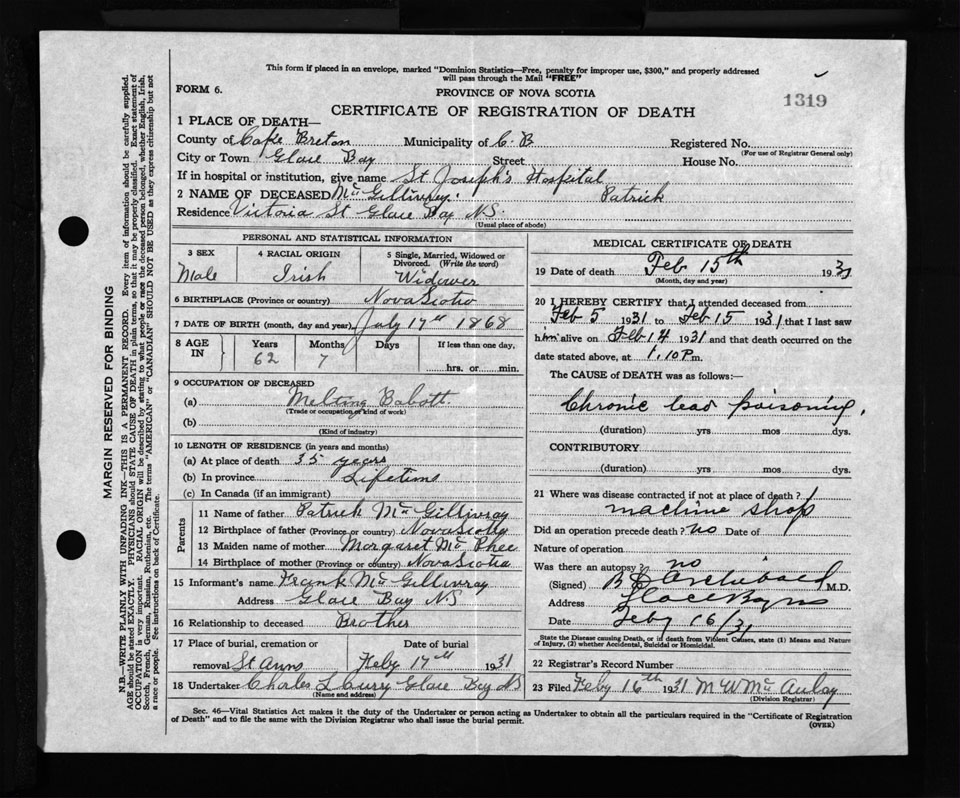 This form if placed in an envelope, marked "Dominion Statistics—Free, penalty for improper use, $300," and properly addressed
will pass through the Mail "FREE"
FORM 6.
PROVINCE OF NOVA SCOTIA
1319
CERTIFICATE OF REGISTRATION OF DEATH
1 PLACE OF DEATH—
County of Cape Breton Municipality of C. B. Registered No.
(For use of Registrar General only)
City or Town Glace Bay Street House No.
If in hospital or institution, give name St Joseph's Hospital
2 NAME OF DECEASED McGillivray. Patrick
Residence Victoria St Glace Bay N.S.
(Usual place of abode)
PERSONAL AND STATISTICAL INFORMATION
3 SEX 4 RACIAL ORIGIN 5 Single, Married, Widowed or Divorced. (Write the word)
Male Irish Widower
6 BIRTHPLACE (Province or country) Nova Scotia
7 DATE OF BIRTH (month, day and year) July 17th 1868
8 AGE IN Years Months Days If less than one day,
62 7 hrs. or min.
9 OCCUPATION OF DECEASED
(a) Melting Babott
(Trade or occupation of kind of work)
(b)
(Kind of industry)
10 LENGTH OF RESIDENCE (in years and months)
(a) At place of death 35 years
(b) In province Lifetime
(c) In Canada (if an immigrant)
Parents
11 Name of father Patrick McGillivray
12 Birthplace of father (Province or country) Nova Scotia
13 Maiden name of mother Margaret McPhee
14 Birthplace of mother (Province or country) Nova Scotia
15 Informant's name Frank McGillivray
Address Glace Bay NS
16 Relationship to deceased Brother
17 Place of burial, cremation or removal St Anns Date of burial Feby 17th 1931
18 Undertaker Charles L Curry Glace Bay NS
(Name and address)
MEDICAL CERTIFICATE OF DEATH
19 Date of death Feb 15th 1931
(Month, day and year)
20 I HEREBY CERTIFY that I attended deceased from
Feb 5 1931 to Feb 15 1931 that I last saw
him alive on Feb 14 1931 and that death occurred on the
date stated above, at 1.10 P.m.
The CAUSE OF DEATH was as follows:—
Chronic lead poisoning.
(duration) yrs mos dys.
CONTRIBUTORY
(duration) yrs mos dys.
21 Where was disease contracted if not at place of death?
machine shop
Did an operation precede death? no Date of
Nature of operation
Was there an autopsy? no
(Signed) Archibald M.D.
Address Glace Bay NS
Date Feby 16/31
State the Disease causing Death, or in death from Violent Causes, state (1) Means and Nature
of Injury, (2) whether Accidental, Suicidal or Homicidal.
22 Registrar's Record Number
23 Filed Feby 16th 1931 M W McAulay
(Division Registrar)
Sec. 46—Vital Statistics Act makes it the duty of the Undertaker or person acting as Undertaker to obtain all the particulars required in the "Certificate of Registration
of Death" and to file the same with the Division Registrar who shall issue the burial permit.
(OVER)
MARGIN RESERVED FOR BINDING
N.B.—WRITE PLAINLY WITH UNFADING INK—THIS IS A PERMANENT RECORD. Every item of information should be carefully supplied.
AGE should be stated EXACTLY. PHYSICIANS should STATE CAUSE OF DEATH in plain terms, so that it may be properly classified. Exact statement of
OCCUPATION is very important. RACIAL ORIGIN will be described by stating to what people or race the deceased person belonged, whether English, Irish,
Scotch, French, German, Russian, Ruthenian, etc. The terms "AMERICAN" or "CANADIAN" SHOULD NOT BE USED as they express citizenship but not
a race or people. See instructions on back of Certificate.